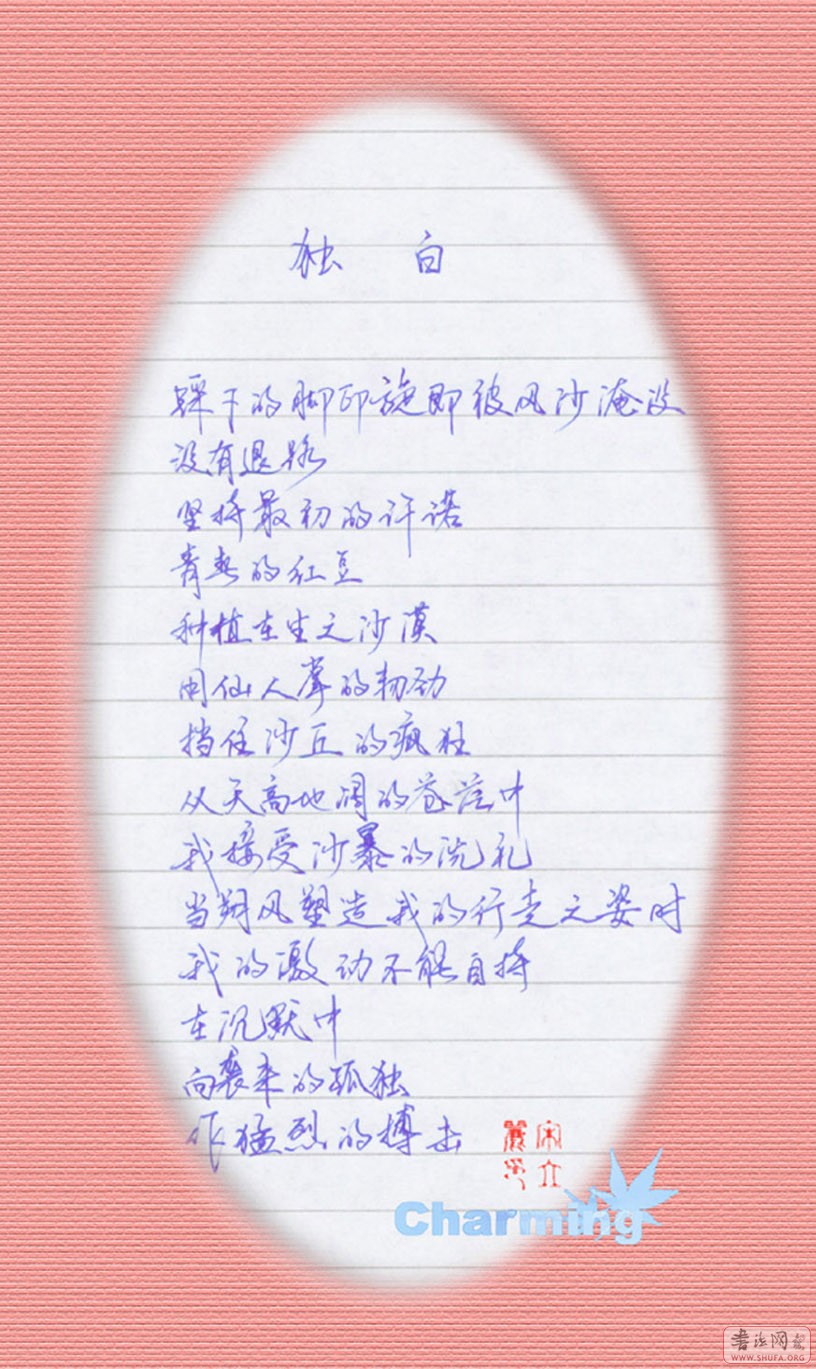 独 白
踩下的脚印旋即被风沙淹没
没有退路
坚持最初的许诺
青春的红豆
种植在生之沙漠
用仙人掌的韧劲
挡住沙丘的疯狂
从天高地阔的苍茫中
我接受沙暴的洗礼
当朔风塑造我的行走之姿时
我的激动不能自持
在沉默中
向袭来的孤独
作猛烈的搏击
Charming
书法网
WWW.SHUFA.ORG